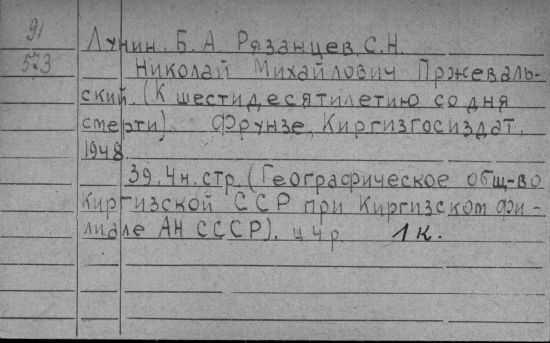 91
573
Лунин. Б. А. Рязанцев, С. Н.
Николай Михайлович Пржеваль-
ский. (К шестидесятилетию со дня
смерти). Фрунзе, Киргизгосиздат,
1948.
39. 4 н. стр. (Географическое общ-во
Киргизской ССР при Киргизском фи-
лиале АН СССР). ц 4 р. 1 к.